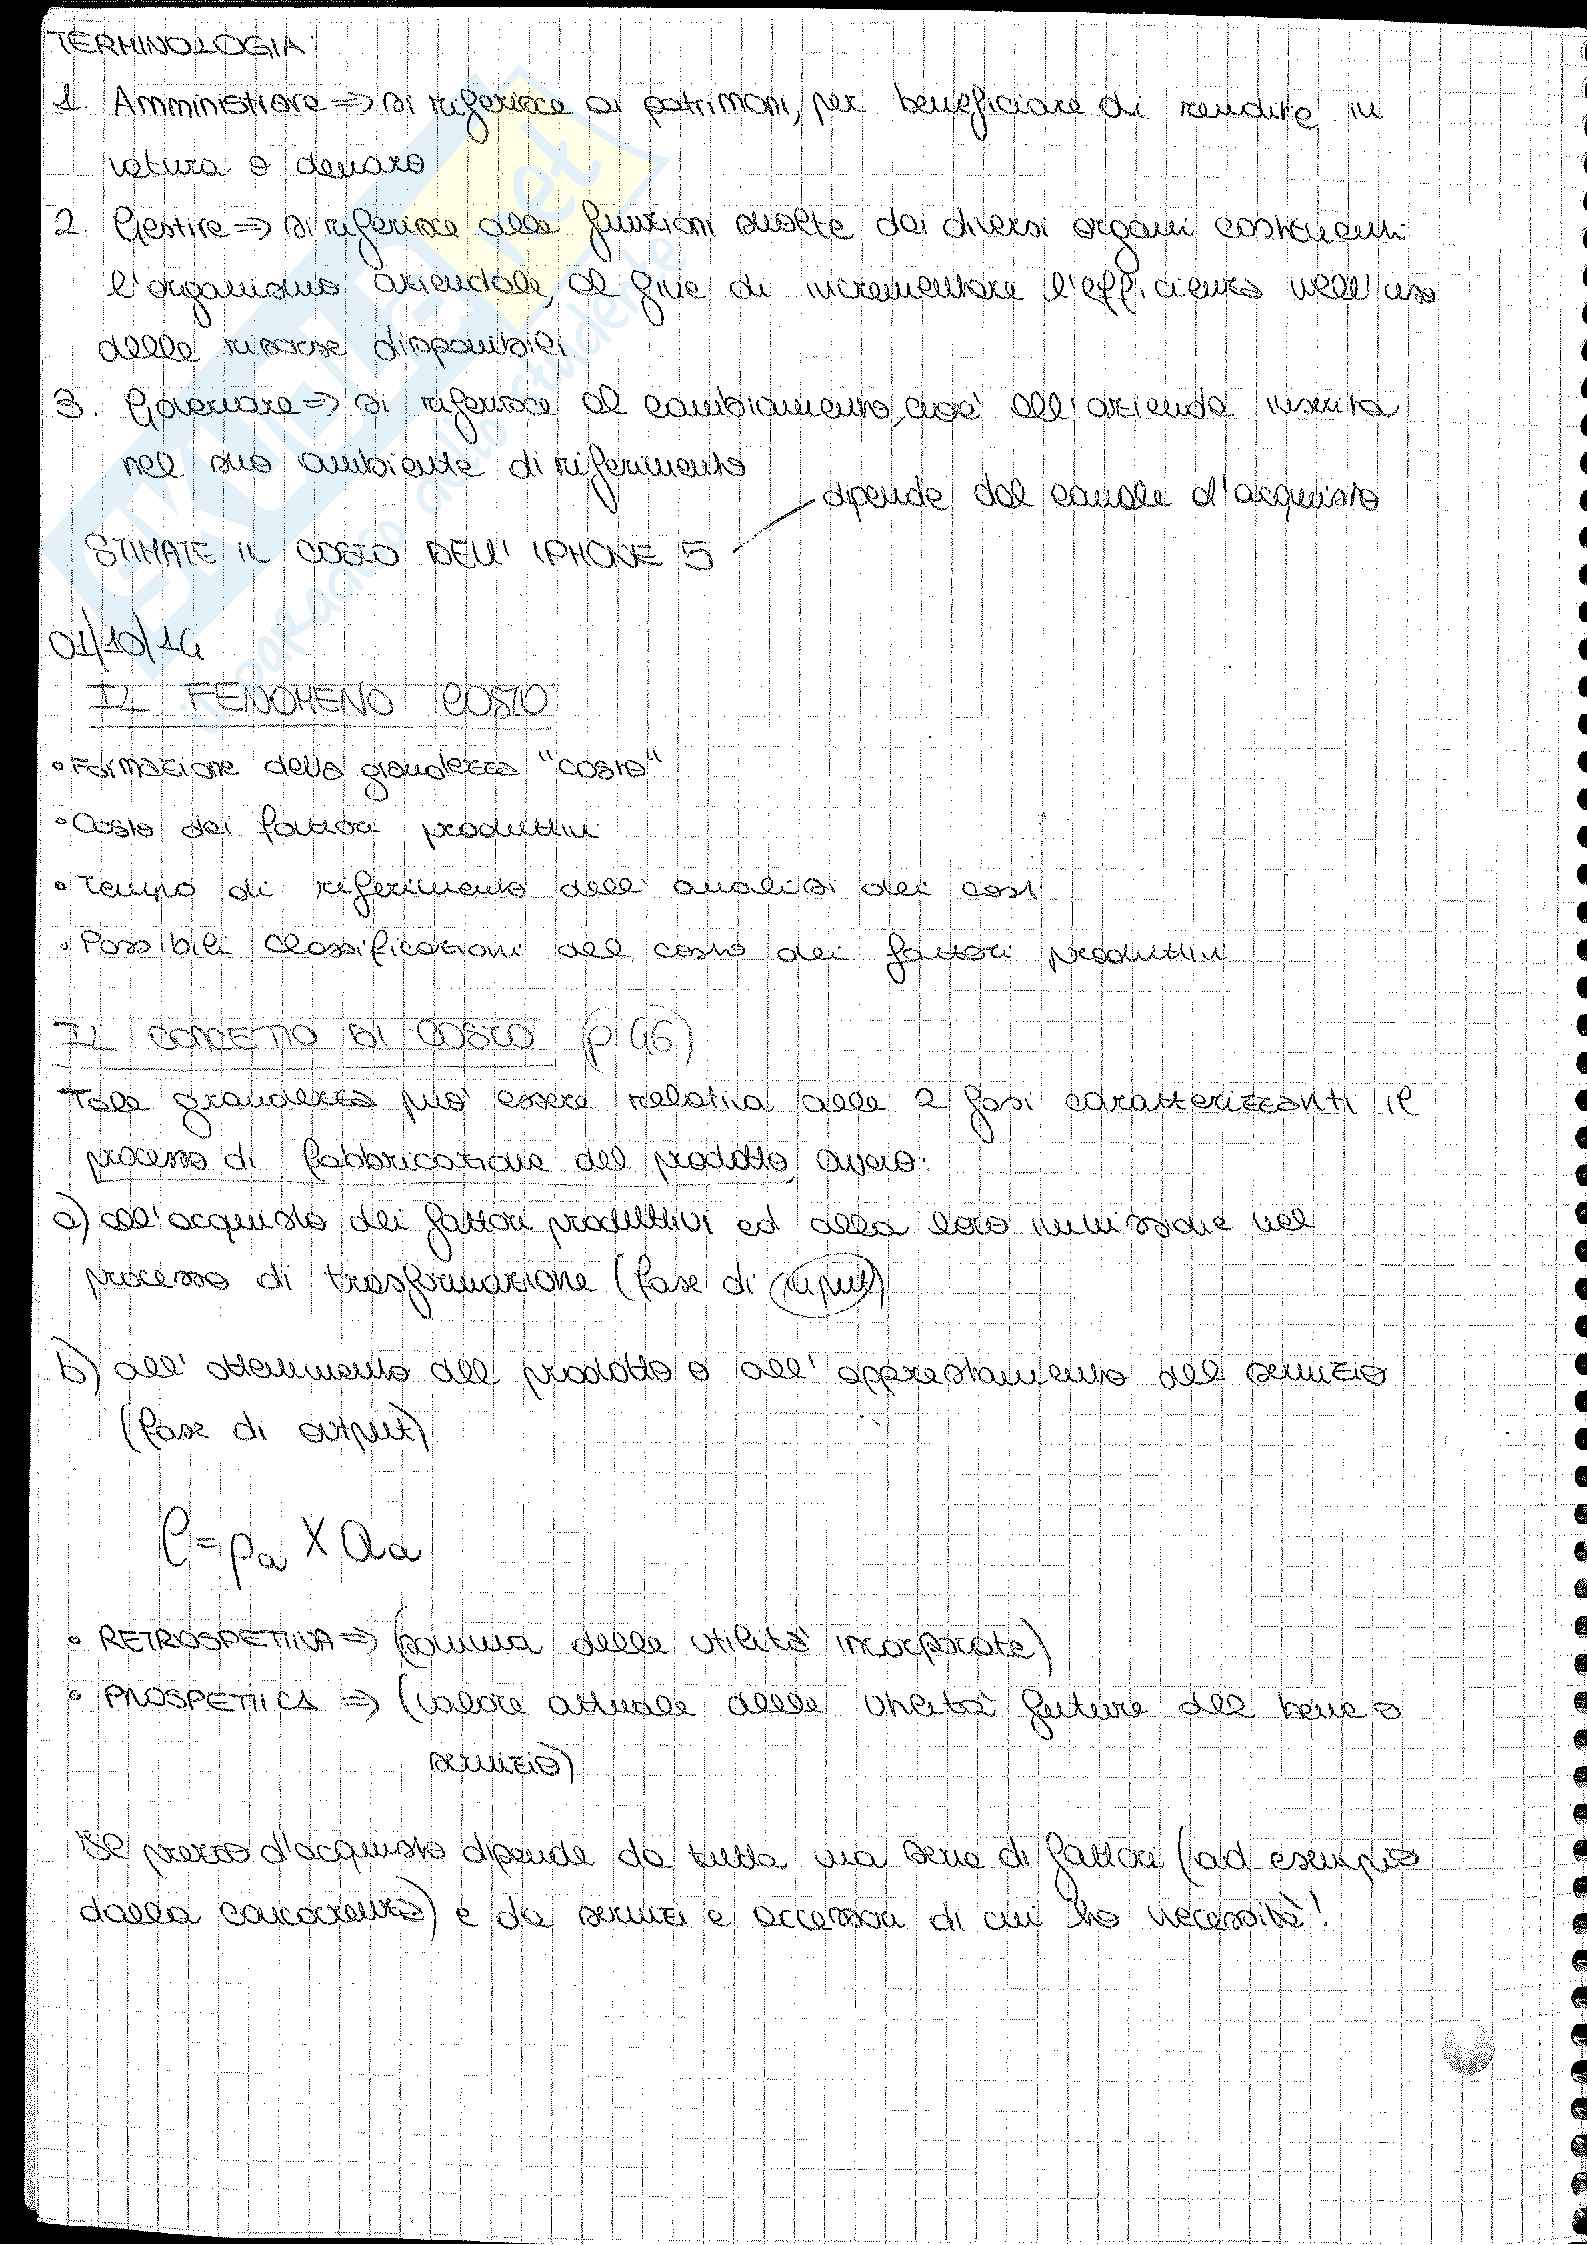 TERMINOLOGIA:
1. Amministrare => si riferisce ai patrimoni, per beneficiare di rendite in
natura o denaro
2. Gestire => si riferisce alle funzioni svolte dai diversi organi costituenti
l'organismo aziendale, al fine di incrementare l'efficienza nell'uso
delle risorse disponibili
3. Governare => si riferisce al cambiamento, cioè all'azienda inserita
nel suo ambiente di riferimento
dipende dal canale d'acquisto
STIMATE IL COSTO DELL' IPHONE 5
01/10/14
IL FENOMENO COSTO
• Formazione della grandezza "costo"
• Costo dei fattori produttivi
• Tempo di riferimento dell' analisi dei costi
• Possibili classificazioni del costo dei fattori produttivi
IL CONCETTO DI COSTO (p. 46)
Tale grandezza può essere relativa alle 2 fasi caratterizzanti il
processo di fabbricazione del prodotto, ovvero:
a) all'acquisto dei fattori produttivi ed alla loro immissione nel
processo di trasformazione (fase di input)
b) all' ottenimento del prodotto o all' apprestamento del servizio
(fase di output)
C = pa X Qa
• RETROSPETTIVA => (somma delle utilità incorporate)
• PROSPETTICA => (valore attuale delle utilità future del bene o
servizio)
Il prezzo d'acquisto dipende da tutta una serie di fattori (ad esempio
dalla concorrenza) e da servizi e accessori di cui ho necessità!